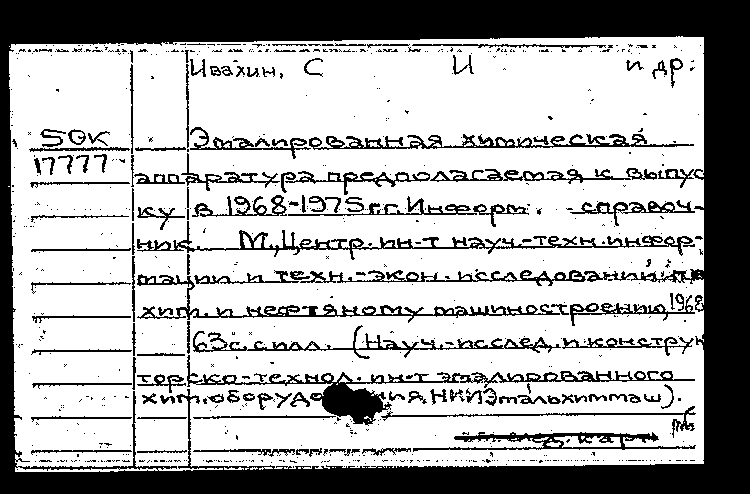 Ивахин, С И и др.
5ӨК Эмалированная химическая
17777 аппаратура предполагаемая к выпус
ку в 1968-1975 г.г. Информ. справоч-
ник. М., Центр. ин-т науч.-техн. инфор-
мации и техн.-экон. исследований по
хим. и нефтяному машиностроению, 1968
63 с. с илл. (Науч.-исслед. и конструк
торско-технол. ин-т эмалированного
хим. оборудо ния, НИИЭмальхиммаш).